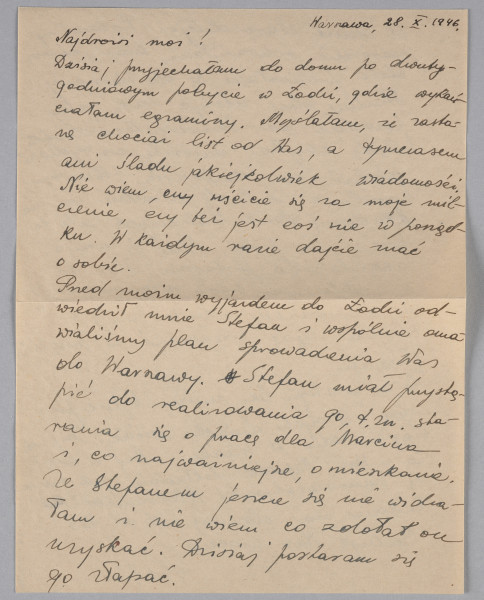 Warszawa, 28. X. 1946.
Najdrożsi moi!
Dzisiaj przyjechałam do domu po dwuty-
godniowym pobycie w Łodzi, gdzie wykań-
czałam egzaminy. Myślałam, że zasta-
nę chociaż list od Was, a tymczasem
ani śladu jakiejkolwiek wiadomości.
Nie wiem, czy mścicie się za moje mil-
czenie, czy też jest coś nie w porząd-
ku. W każdym razie dajcie znać
o sobie.
Przed moim wyjazdem do Łodzi od-
wiedził mnie Stefan i wspólnie oma-
wialiśmy plan sprowadzenia Was
do Warszawy. Stefan miał przystą-
pić do realizowania go, t.zn. sta-
rania się o pracę dla Marcina
i, co najważniejsze, o mieszkanie.
Ze Stefanem jeszcze się nie widzia-
łam i nie wiem co zdołał on
uzyskać. Dzisiaj postaram się
go złapać.